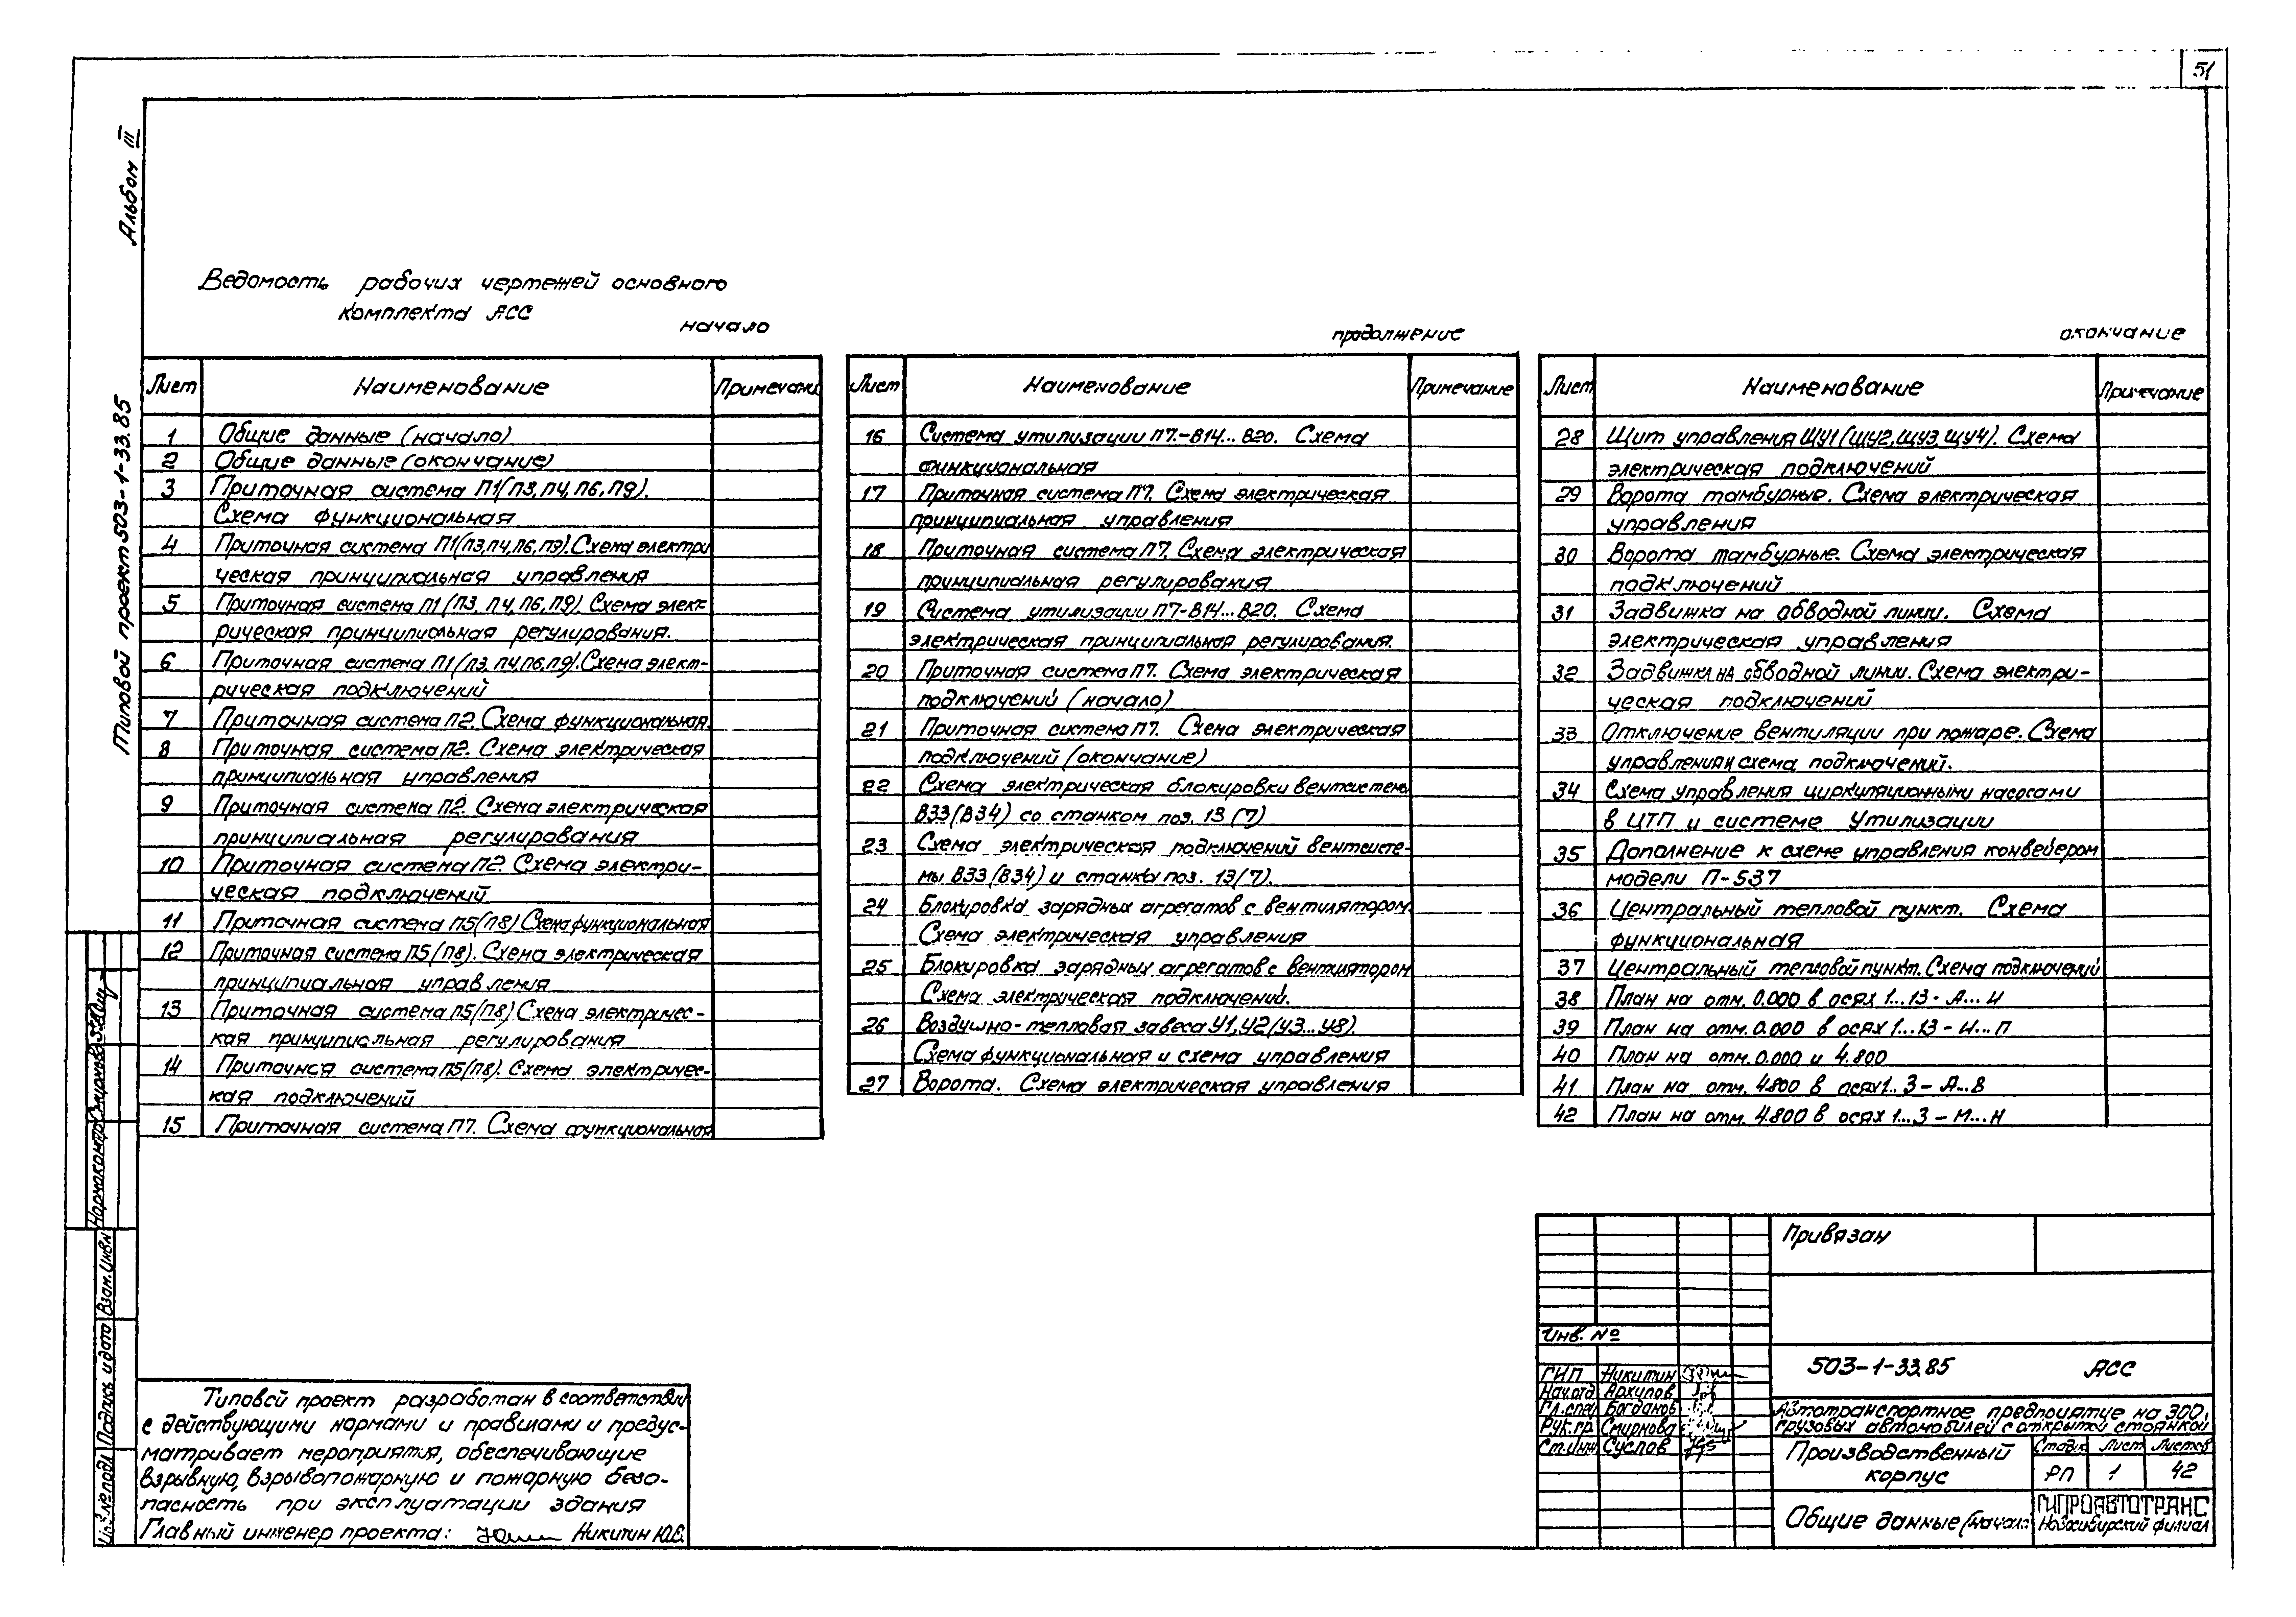 51
Альбом III
Типовой проект 503-1-33.85
Ведомость рабочих чертежей основного
комплекта АСС
начало
Лист Наименование Примечани
1 Общие данные (начало)
2 Общие данные (окончание)
3 Приточная система П1(П3, П4, П6, П9).
Схема функциональная
4 Приточная система П1(П3,П4,П6,П9).Схема электри
ческая принципиальная управления
5 Приточная система П1(П3, П4, П6, П9). Схема элект-
рическая принципиальная регулирования.
6 Приточная система П1(П3, П4,П6,П9).Схема элект-
рическая подключений
7 Приточная система П2. Схема функциональная.
8 Приточная система П2. Схема электрическая
принципиальная управления
9 Приточная система П2. Схема электрическая
принципиальная регулирования
10 Приточная система П2. Схема электри-
ческая подключений
11 Приточная система П5(П8) Схема функциональная
12 Приточная система П5(П8). Схема электрическая
принципиальная управления
13 Приточная система П5(П8) Схема электричес-
кая принципиальная регулирования
14 Приточная система П5(П8). Схема электричес-
кая подключений
15 Приточная система П7. Схема функциональная
продолжение
Лист Наименование Примечание
16 Система утилизации П7.-В14...В20. Схема
функциональная
17 Приточная система П7. Схема электрическая
принципиальная управления
18 Приточная система П7. Схема электрическая
принципиальная регулирования
19 Система утилизации П7-В14...В20. Схема
электрическая принципиальная регулирования.
20 Приточная система П7. Схема электрическая
подключений (начало)
21 Приточная система П7. Схема электрическая
подключений (окончание)
22 Схема электрическая блокировки вентсистемы
В33(В34) со станком поз. 13 (7)
23 Схема электрическая подключений вентсисте-
мы В33(В34) и станка поз. 13(7).
24 Блокировка зарядных агрегатов с вентилятором.
Схема электрическая управления
25 Блокировка зарядных агрегатов с вентилятором
Схема электрическая подключений.
26 Воздушно-тепловая завеса У1,У2(У3...У8).
Схема функциональная и схема управления
27 Ворота. Схема электрическая управления
окончание
Лист Наименование Примечание
28 Щит управления ЩУ1(ЩУ2,ЩУ3,ЩУ4). Схема
электрическая подключений
29 Ворота тамбурные. Схема электрическая
управления
30 Ворота тамбурные. Схема электрическая
подключений
31 Задвижка на обводной линии. Схема
электрическая управления
32 Задвижка на обводной линии. Схема электри-
ческая подключений
33 Отключение вентиляции при пожаре. Схема
управления и схема подключений.
34 Схема управления циркуляционными насосами
в ЦТП и системе утилизации
35 Дополнение к схеме управления конвейером
модели П-537
36 Центральный тепловой пункт. Схема
функциональная
37 Центральный тепловой пункт. Схема подключений
38 План на отм. 0.000 в осях 1...13 - А...И
39 План на отм. 0.000 в осях 1...13 - И...П
40 План на отм. 0.000 и 4.800
41 План на отм. 4.800 в осях 1..3 - А...В
42 План на отм. 4.800 в осях 1...3 - М...Н
Нормоконтр Смирнова
Взам.инв.N
Подпись и дата
Инв.№ подл
Типовой проект разработан в соответствии
с действующими нормами и правилами и предус-
матривает мероприятия, обеспечивающие
взрывную, взрывопожарную и пожарную безо-
пасность при эксплуатации здания
Главный инженер проекта: Никитин Ю.Е.
Привязан
Инв. №
503-1-33.85 АСС
ГИП Никитин
Нач.отд Архипов
Гл.спец Богданов
Рук.гр. Смирнова
Ст.инж Суслов
Автотранспортное предприятие на 300
грузовых автомобилей с открытой стоянкой
Производственный
корпус
Стадия Лист Листов
РП 1 42
Общие данные (начало)
ГИПРОАВТОТРАНС
Новосибирский филиал